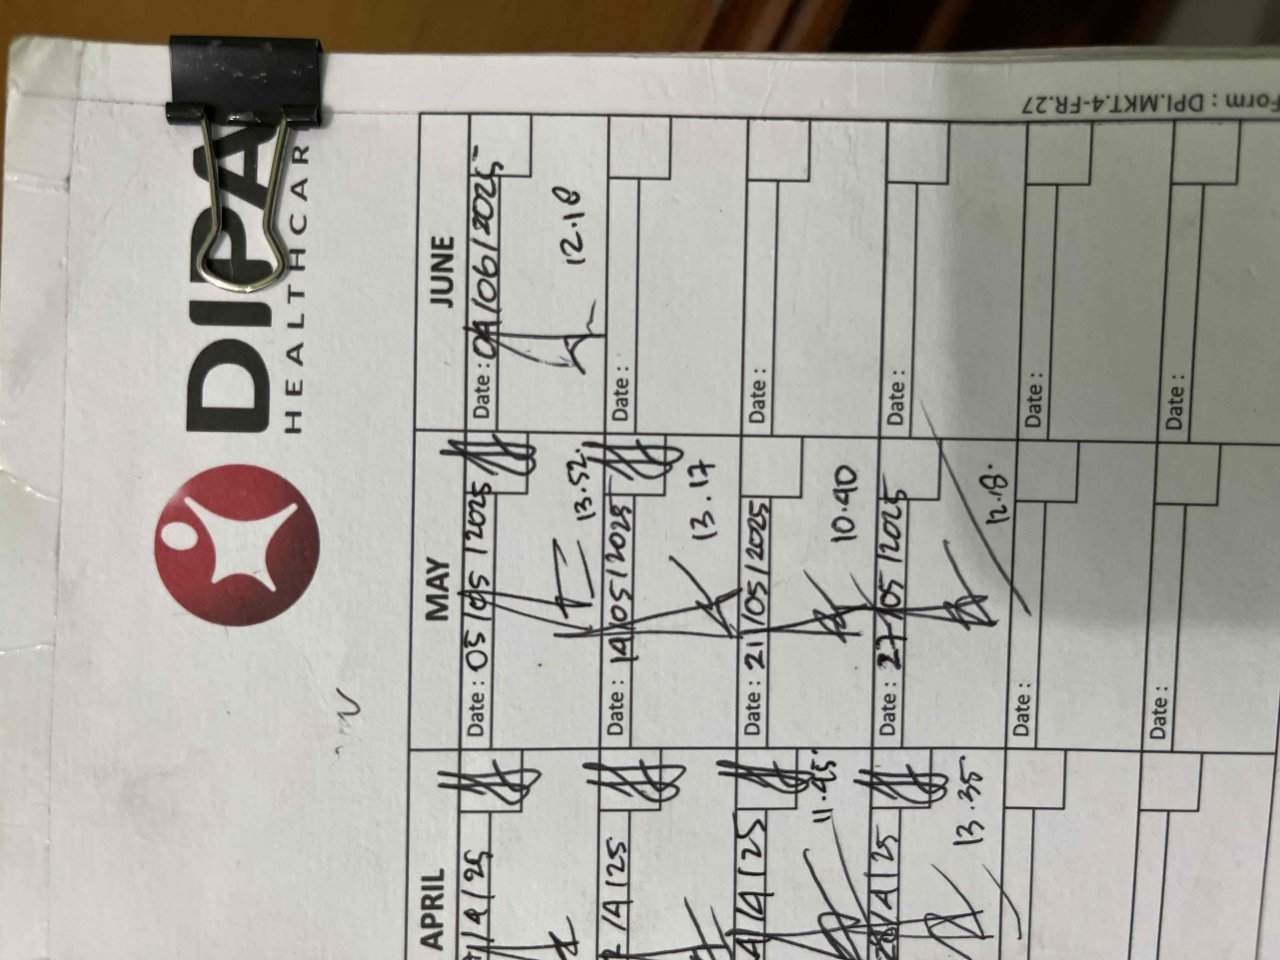 DIPA
HEALTHCAR
Form : DPI.MKT.4-FR.27
APRIL
/4/25
/4/25
/4/25
11.45
/4/25
13.35
MAY
Date : 05/05/2025
13.52
Date : 14/05/2025
13.17
Date : 21/05/2025
10.40
Date : 27/05/2025
12.18
Date :
Date :
JUNE
Date : 04/06/2025
12.18
Date :
Date :
Date :
Date :
Date :